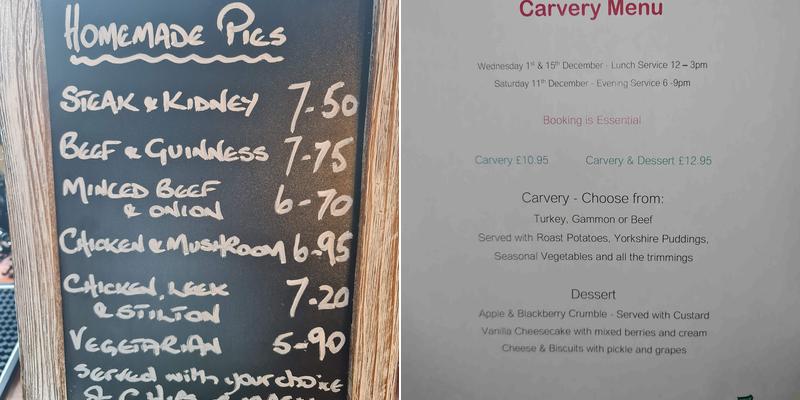 HOMEMADE PIES
STEAK & KIDNEY 7-50
BEEF & GUINNESS 7-75
MINCED BEEF
& ONION 6-70
CHICKEN & MUSHROOM 6-95
CHICKEN, LEEK
& STILTON 7-20
VEGETARIAN 5-90
served with your choice
Carvery Menu
Wednesday 1st & 15th December - Lunch Service 12 – 3pm
Saturday 11th December - Evening Service 6 -9pm
Booking is Essential
Carvery £10.95 Carvery & Dessert £12.95
Carvery - Choose from:
Turkey, Gammon or Beef
Served with Roast Potatoes, Yorkshire Puddings,
Seasonal Vegetables and all the trimmings
Dessert
Apple & Blackberry Crumble - Served with Custard
Vanilla Cheesecake with mixed berries and cream
Cheese & Biscuits with pickle and grapes